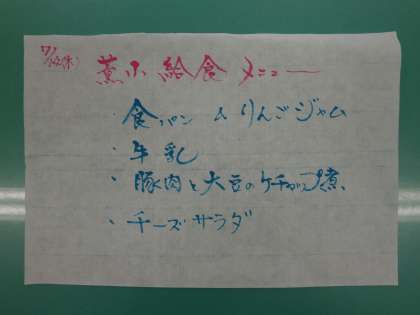 薫小 給食 メニュー
・食パン & りんごジャム
・牛乳
・豚肉と大豆のケチャップ煮
・チーズサラダ